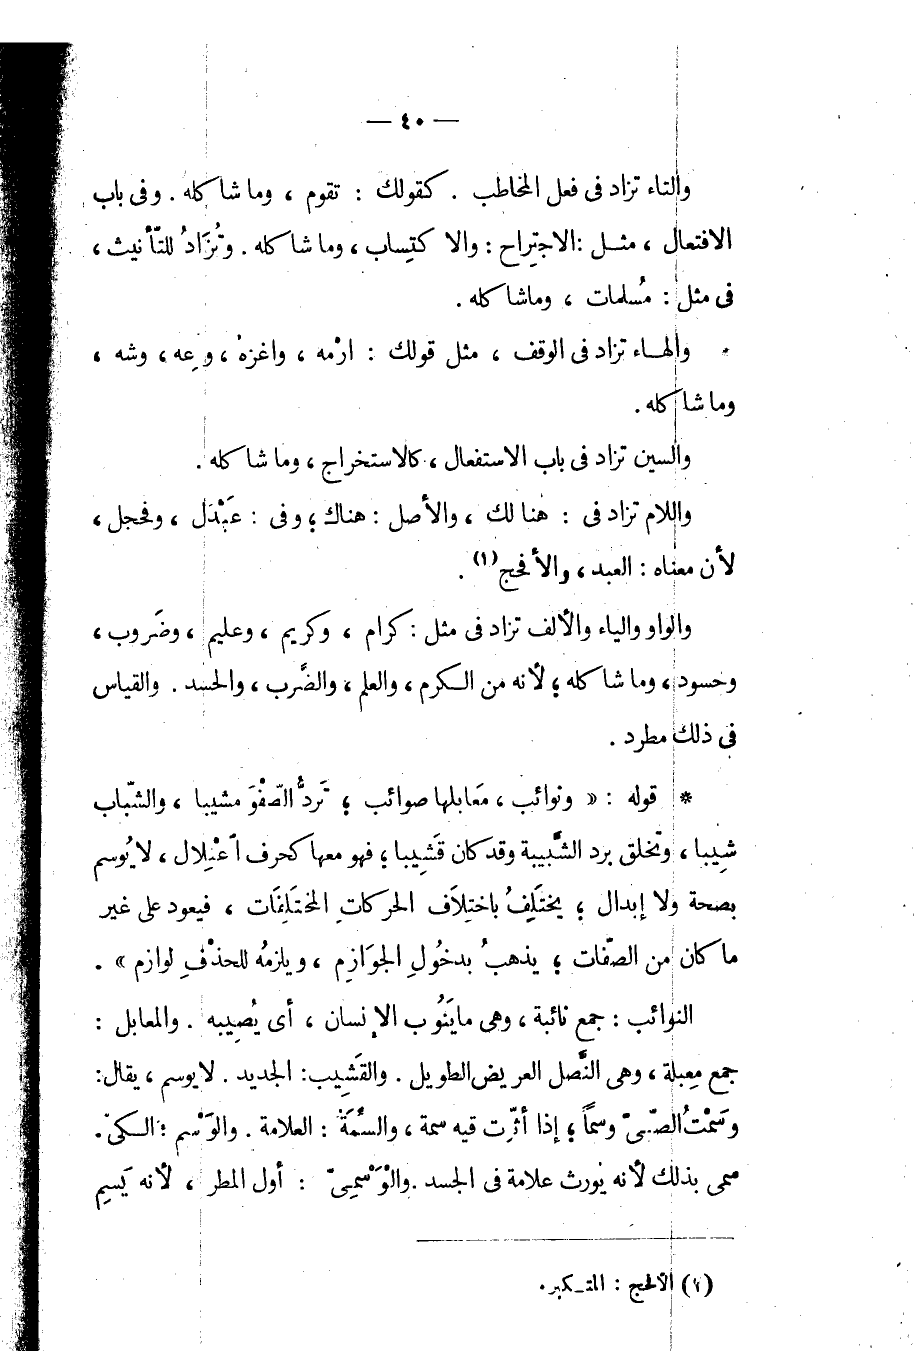 — ٤٠ —
والتاء تزاد فى فعل المخاطب . كقولك : تقوم ، وما شاكله . وفى باب
الافتعال ، مثل : الاجتِراح : والاكتِساب ، وما شاكله . وتُزَادُ للتّأنيث ،
فى مثل : مُسلمات ، وماشاكله .
والهاء تزاد فى الوقف ، مثل قولك : ارْمه ، واغزهْ ، وعِه ، وشه ،
وما شاكله .
والسين تزاد فى باب الاستفعال ، كالاستخراج ، وما شاكله .
واللام تزاد فى : هنالك ، والأصل : هناك ؛ وفى : عَبْدَل ، وفحجل ،
لأن معناه : العبد ، والأفحج (١) .
والواو والياء والألف تزاد فى مثل : كرام ، وكريم ، وعليم ، وضَروب ،
وحسود ، وما شاكله ؛ لأنه من الكرم ، والعلم ، والضَّرب ، والحسد . والقياس
فى ذلك مطرد .
* قوله : « ونوائب ، مَعابلها صوائب ؛ تَردُّ الصّفْوَ مشيبا ، والشّباب
شِيبا ، وتخلق برد الشَّبيبة وقد كان قَشيبا ؛ فهو معها كحرف اعْتِلال ، لا يُوسم
بصحة ولا إبدال ؛ يختَلِفُ باختِلَاف الحركاتِ المختَلِفَات ، فيعود على غير
ما كان من الصّفات ؛ يذهبُ بدخُولِ الجوَازِم ، ويلزمُه للحذْفِ لوازم » .
النوائب : جمع نائبة ، وهى ماينُوب الإنسان ، أى يُصِيبه . والمعابل :
جمع مِعبلة ، وهى النَّصل العريض الطويل . والقَشِيب : الجديد . لايوسم ، يقال :
وسَمْتُ الصّبىّ وسماً ؛ إذا أثّرت فيه سمة ، والسِّمَةُ : العلامة . والوَسْم : الكىّ .
سمى بذلك لأنه يُورث علامة فى الجسد . والْوَسْمِىّ : أول المطر ، لأنه يَسِم
(١) الألحج : المتكبر .